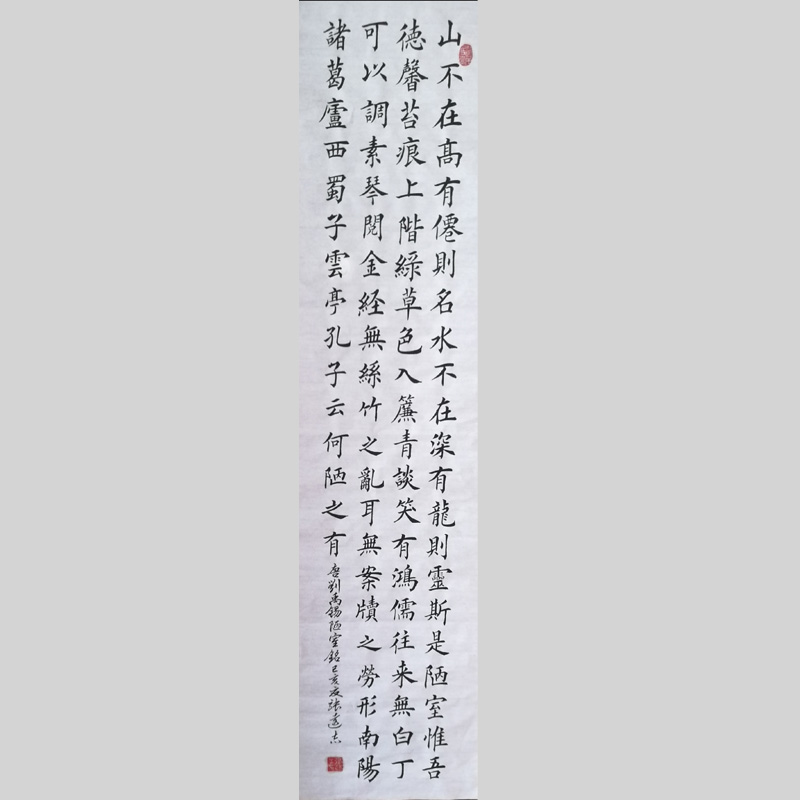 山不在高有僊則名水不在深有龍則靈斯是陋室惟吾
德馨苔痕上階綠草色入簾青談笑有鴻儒往来無白丁
可以調素琴閱金経無絲竹之亂耳無案牘之勞形南陽
諸葛廬西蜀子雲亭孔子云何陋之有
唐劉禹錫陋室銘己亥夏張遠志